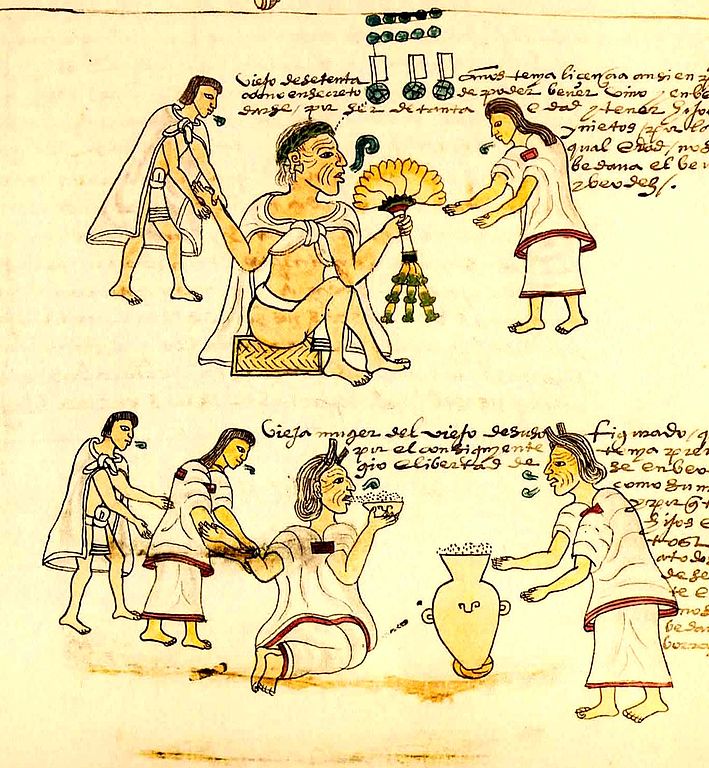 Viejo de setenta años tenia licençia ansi en p
como en secreto de poder bever vino y enbe
darse, por ser de tanta edad y tener hijos
y nietos, por lo
qual edad, no s
bedava el bev
y beodez.
Vieja muger del viejo desuso figurado, q
por el consiguiente tenia prev
gio e libertad de se enbeo
como su m
y por q t
hijos e
a todos
de se
te e